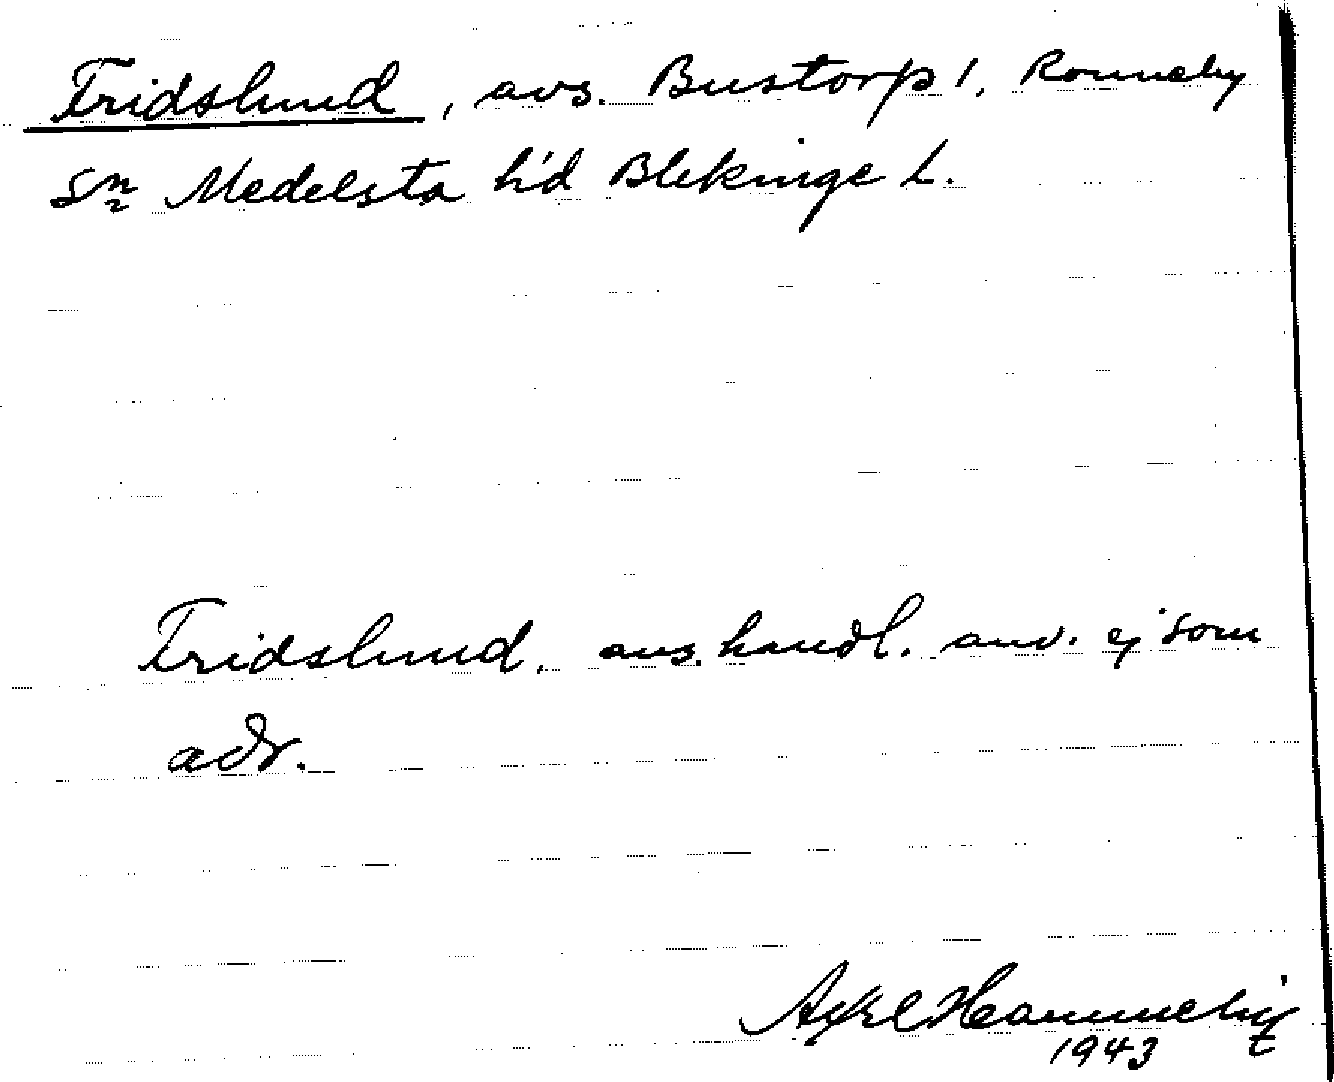 Fridslund, avs. Bustorp 1, Ronneby
Sn Medelsta h'd Blekinge L.
Fridslund, avs. handl. anv. ej som
adr.
Axel
1943